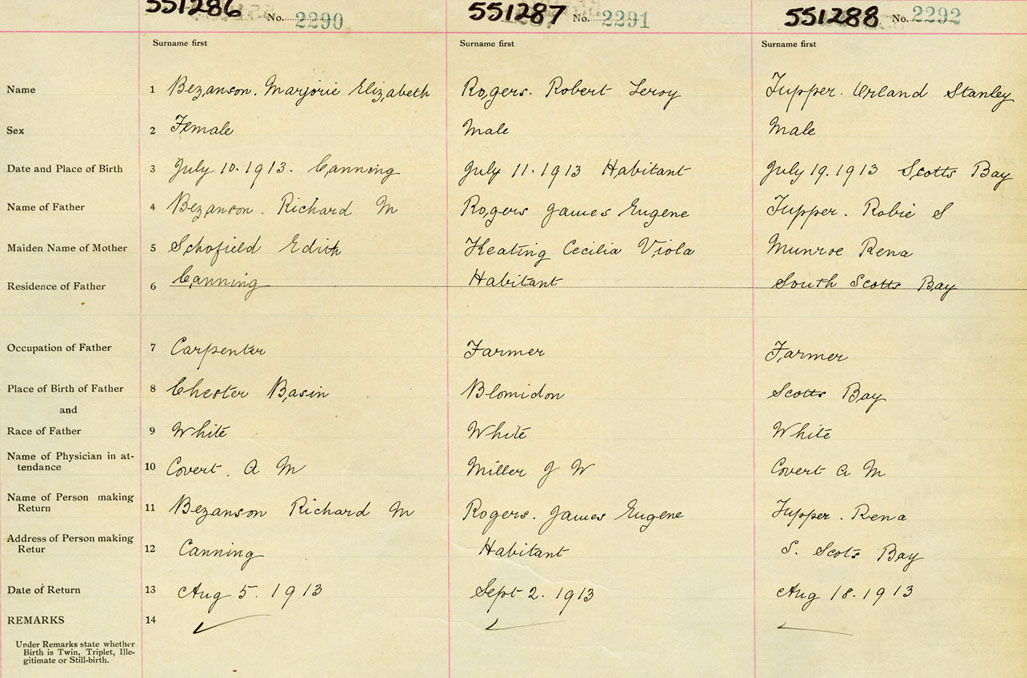 551286 No. 2290 551287 No. 2291 551288 No. 2292
Surname first Surname first Surname first
Name 1 Bezanson. Marjorie Elizabeth Rogers. Robert Leroy Tupper. Urland Stanley
Sex 2 Female Male Male
Date and Place of Birth 3 July 10. 1913. Canning July 11. 1913 Habitant July 19. 1913 Scotts Bay
Name of Father 4 Bezanson. Richard M Rogers James Eugene Tupper. Robie S
Maiden Name of Mother 5 Schofield Edith Keating Cecilia Viola Munroe Rena
Residence of Father 6 Canning Habitant South Scotts Bay
Occupation of Father 7 Carpenter Farmer Farmer
Place of Birth of Father 8 Chester Basin Blomidon Scotts Bay
and
Race of Father 9 White White White
Name of Physician in at-
tendance 10 Covert. A M Miller J W Covert A M
Name of Person making
Return 11 Bezanson Richard M Rogers. James Eugene Tupper. Rena
Address of Person making
Retur 12 Canning Habitant S. Scots Bay
Date of Return 13 Aug 5. 1913 Sept 2. 1913 Aug 18. 1913
REMARKS 14
Under Remarks state whether
Birth is Twin, Triplet, Ille-
gitimate or Still-birth.